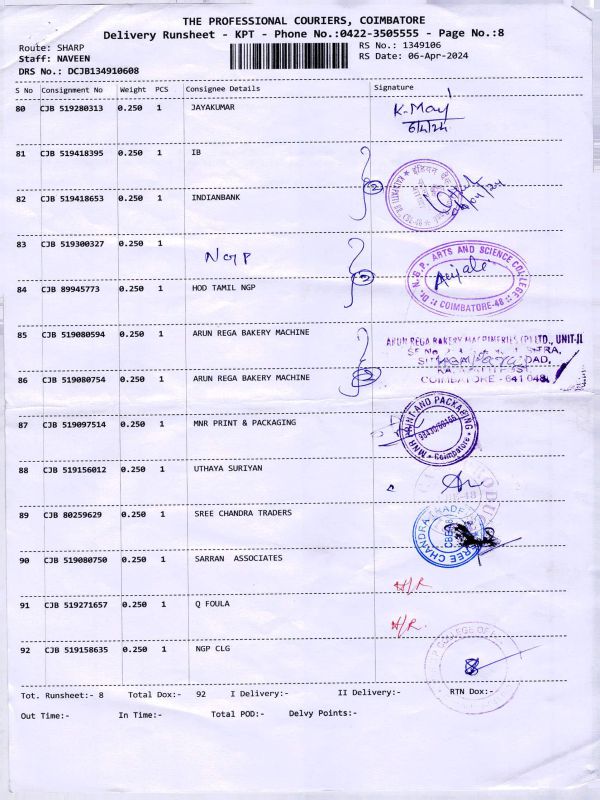 THE PROFESSIONAL COURIERS, COIMBATORE
Delivery Runsheet - KPT - Phone No.:0422-3505555 - Page No.:8
Route: SHARP
RS No.: 1349106
Staff: NAVEEN
RS Date: 06-Apr-2024
DRS No.: DCJB134910608
S No Consignment No Weight PCS Consignee Details Signature
80 CJB 519280313 0.250 1 JAYAKUMAR
6/4/24
81 CJB 519418395 0.250 1 IB
82 CJB 519418653 0.250 1 INDIANBANK
83 CJB 519300327 0.250 1
NGP
Dr. N.G.P. ARTS AND SCIENCE COLLEGE
Anjali
COIMBATORE-48
84 CJB 89945773 0.250 1 HOD TAMIL NGP
85 CJB 519080594 0.250 1 ARUN REGA BAKERY MACHINE
ARUN REGA BAKERY MACHINERIES (P) LTD., UNIT-II
COIMBATORE - 641 048
86 CJB 519080754 0.250 1 ARUN REGA BAKERY MACHINE
87 CJB 519097514 0.250 1 MNR PRINT & PACKAGING
MNR PRINT AND PACKAGING
Coimbatore
88 CJB 519156012 0.250 1 UTHAYA SURIYAN
89 CJB 80259629 0.250 1 SREE CHANDRA TRADERS
SREE CHANDRA TRADERS
90 CJB 519080750 0.250 1 SARRAN ASSOCIATES
91 CJB 519271657 0.250 1 Q FOULA
92 CJB 519158635 0.250 1 NGP CLG
Tot. Runsheet:- 8 Total Dox:- 92 I Delivery:- II Delivery:- RTN Dox:-
Out Time:- In Time:- Total POD:- Delvy Points:-